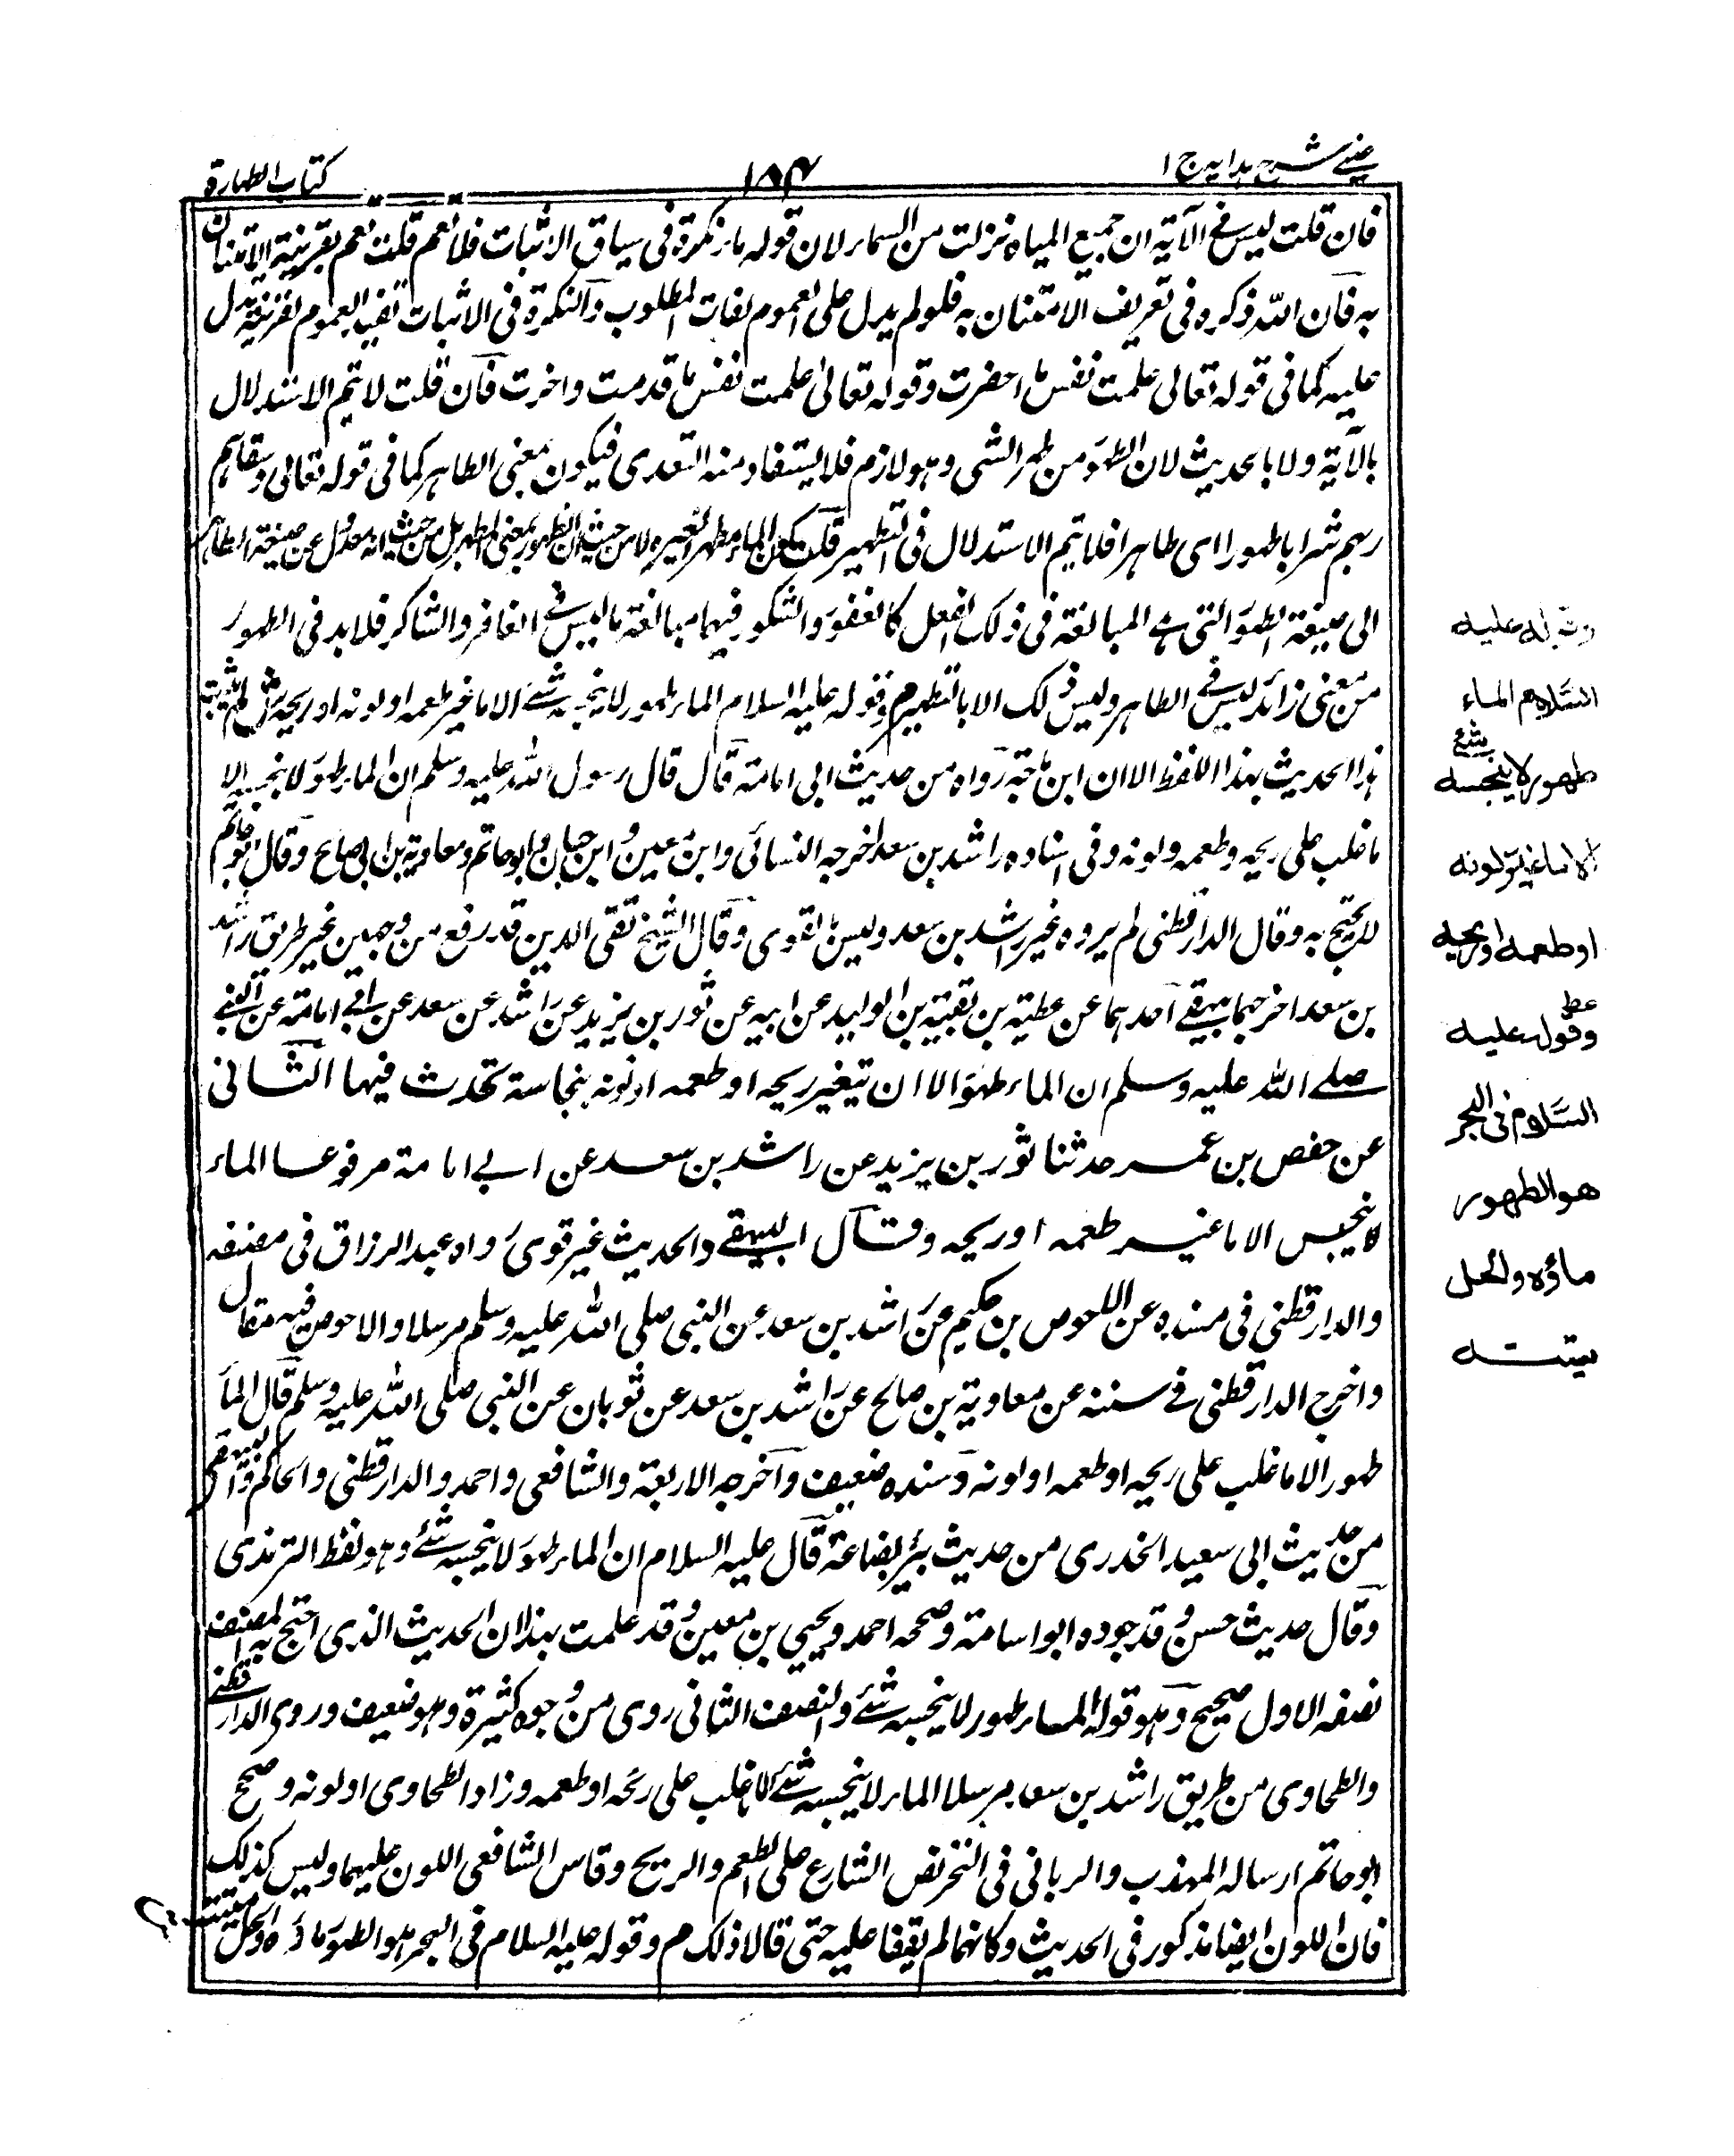 عينى شرح هدايه ج ١
١٨٤
كتاب الطهارة
فان قلت ليس فى الآية ان جميع المياه نزلت من السماء لان قوله ماء نكرة فى سياق الاثبات فلا تعم قلت تعم بقرينة الامتنان
به فان الله ذكره فى تعريف الامتنان به فلو لم يدل على العموم لفات المطلوب والنكرة فى الاثبات تفيد العموم لقرينة تدل
عليه كما فى قوله تعالى علمت نفس ما احضرت وقوله تعالى علمت نفس ما قدمت واخرت فان قلت لا يتم الاستدلال
بالآية ولا بالحديث لان الطهور من طهر الشى وهو لازم فلا يستفاد منه التعدى فيكون معنى الطاهر كما فى قوله تعالى وسقاهم
ربهم شرابا طهورا اى طاهرا فلا يتم الاستدلال فى التطهير قلت كون الماء مطهرا لغيره لا من حيث ان الطهور بمعنى المطهر بل من حيث انه معدول عن صيغة الطاهر
الى صيغة الطهور التى هى المبالغة فى ذلك الفعل كالغفور والشكور فيهما مبالغة ما ليس فى الغافر والشاكر فلابد فى الطهور
من معنى زائد ليس فى الطاهر وليس ذلك الا بالتطهير م وقوله عليه السلام الماء طهور لا ينجسه شئ الا ما غير طعمه او لونه او ريحه ش لم يثبت
هذا الحديث بهذا اللفظ الا ان ابن ماجة رواه من حديث ابى امامة قال قال رسول الله عليه وسلم ان الماء طهور لا ينجسه الا
ما غلب على ريحه وطعمه ولونه وفى اسناده راشد بن سعد اخرجه النسائى وابن معين وابن حبان وابو حاتم ومعاوية بن ابى صالح وقال ابو حاتم
لا يحتج به وقال الدارقطنى لم يروه غير راشد بن سعد وليس بالقوى وقال الشيخ تقى الدين قد رفع من وجهين غير طريق راشد
بن سعد اخرجهما البيهقى احدهما عن عطية بن بقية بن الوليد عن ابيه عن ثور بن يزيد عن راشد عن سعد عن ابى امامة عن النبى
صلى الله عليه وسلم ان الماء طهور الا ان تيغير ريحه او طعمه او لونه بنجاسة تحدث فيها الثانى
عن حفص بن عمر حدثنا ثور بن يزيد عن راشد بن سعد عن ابى امامة مرفوعا الماء
لا ينجس الا ما غير طعمه او ريحه وقال البيهقى والحديث غير قوى رواه عبد الرزاق فى مصنفه
والدارقطنى فى مسنده عن اللحوص بن حكيم عن راشد بن سعد عن النبى صلى الله عليه وسلم مرسلا والاحوص فيه مقال
واخرج الدارقطنى فى سننه عن معاوية بن صالح عن راشد بن سعد عن ثوبان عن النبى صلى الله عليه وسلم قال الماء
طهور الا ما غلب على ريحه او طعمه او لونه وسنده ضعيف واخرجه الاربعة والشافعى واحمد والدارقطنى والحاكم والبيهقى
من حديث ابى سعيد الخدرى من حديث بئر بضاعة قال عليه السلام ان الماء طهور لا ينجسه شئ وهو لفظ الترمذى
وقال حديث حسن وقد جوده ابو اسامة وصححه احمد ويحيى بن معين وقد علمت بهذا ان الحديث الذى احتج به المصنف
نصفه الاول صحيح وهو قوله الماء طهور لا ينجسه شئ والنصف الثانى روى من وجوه كثيرة وهو ضعيف وروى الدارقطنى
والطحاوى من طريق راشد بن سعد مرسلا الماء لا ينجسه شئ الا ما غلب على ريحه او طعمه وزاد الطحاوى او لونه وصحح
ابو حاتم ارساله المهذب والربانى فى النخر نص الشارع على الطعم والريح وقاس الشافعى اللون عليهما وليس كذلك
فان اللون ايضا مذكور فى الحديث وكانهما لم يقفا عليه حتى قالا ذلك م وقوله عليه السلام فى البحر هو الطهور ماؤه والحل ميتته
وقوله عليه
السّلام الماء
طهور لا ينجسه شئ
الا ما غير لونه
او طعمه او ريحه
وقوله عليه
السّلام فى البحر
هو الطهور
ماؤه والحل
ميتته